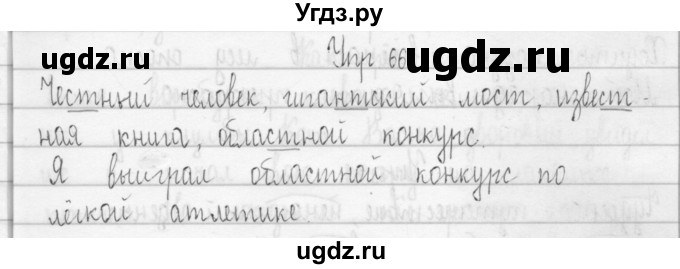 Угдз.ру
Упр 66
ugdz.ru ugdz.ru
Честный человек, гигантский мост, извест-
ная книга, областной конкурс.
Я выиграл областной конкурс по
лёгкой атлетике
ugdz.ru